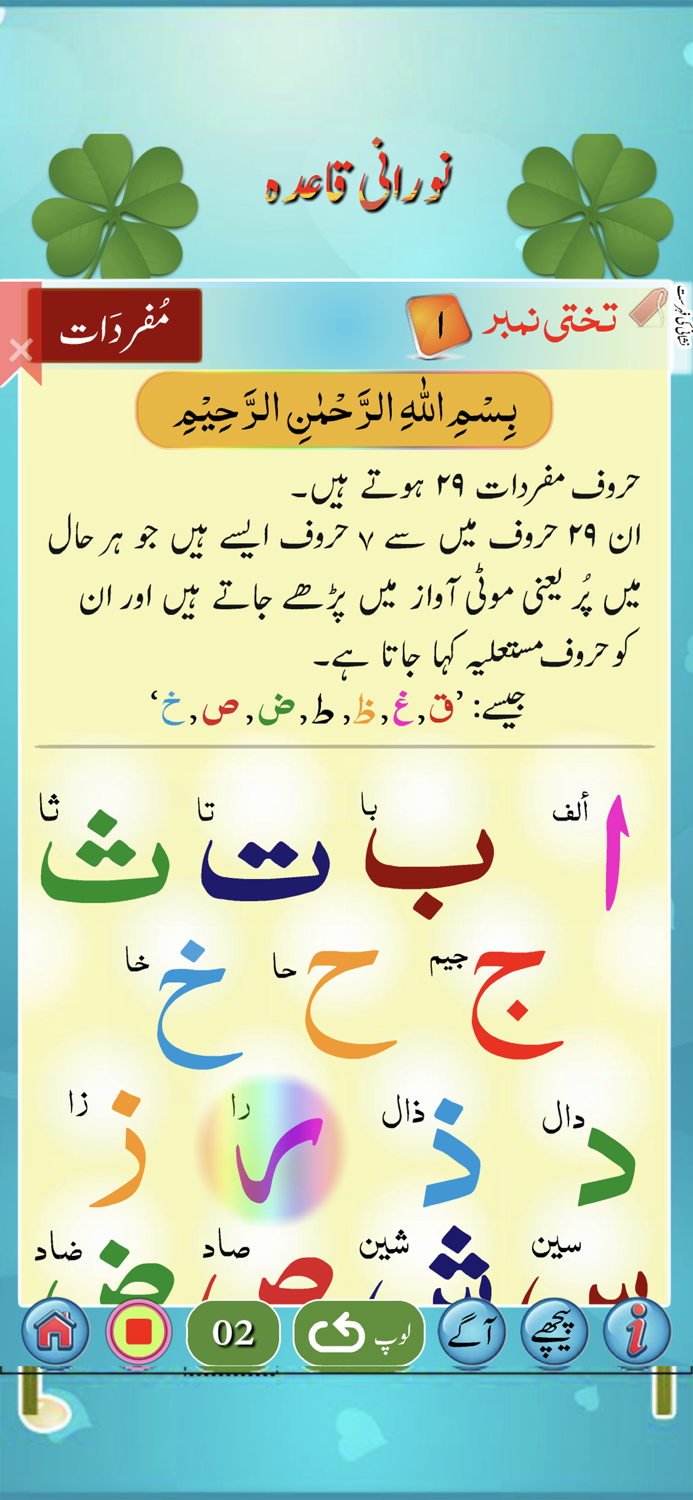 نورانی قاعدہ
تختی نمبر ۱ مُفرَدَات
نشانی کی فہرست
بِسْمِ اللهِ الرَّحْمٰنِ الرَّحِيْمِ
حروف مفردات ۲۹ ہوتے ہیں۔
ان ۲۹ حروف میں سے ۷ حروف ایسے ہیں جو ہر حال
میں پُر یعنی موٹی آواز میں پڑھے جاتے ہیں اور ان
کو حروف مستعلیہ کہا جاتا ہے۔
جیسے: ’ق, غ, ظ, ط, ض, ص, خ‘
ألف با تا ثا
ا ب ت ث
جیم حا خا
ج ح خ
دال ذال را زا
د ذ ر ز
سین شین صاد ضاد
س ش ص ض
02 لوپ آگے پیچھے i